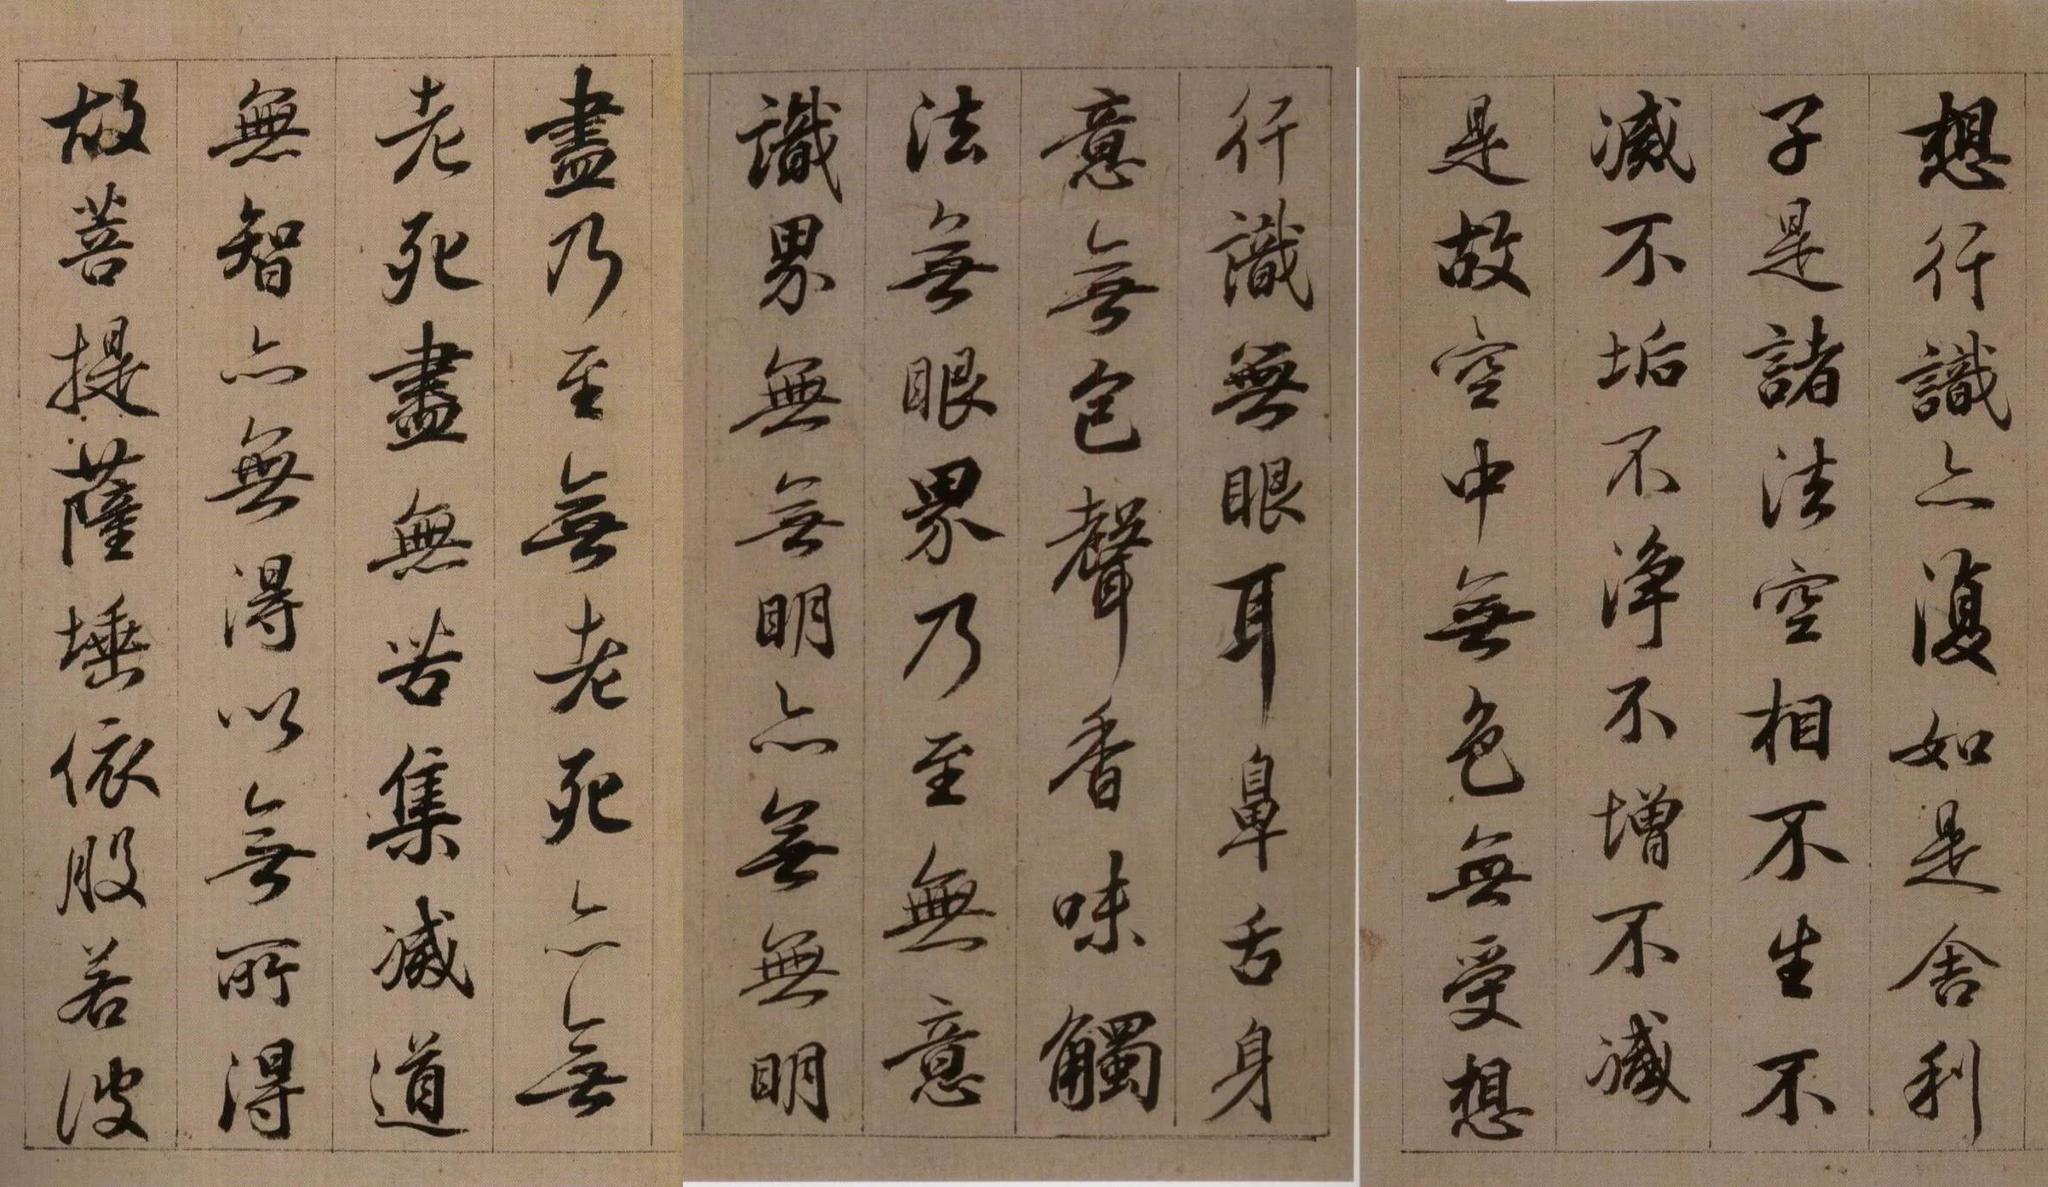 想行識亦復如是舍利
子是諸法空相不生不
滅不垢不淨不增不減
是故空中無色無受想
行識無眼耳鼻舌身
意無色聲香味觸
法無眼界乃至無意
識界無無明亦無無明
盡乃至無老死亦無
老死盡無苦集滅道
無智亦無得以無所得
故菩提薩埵依般若波